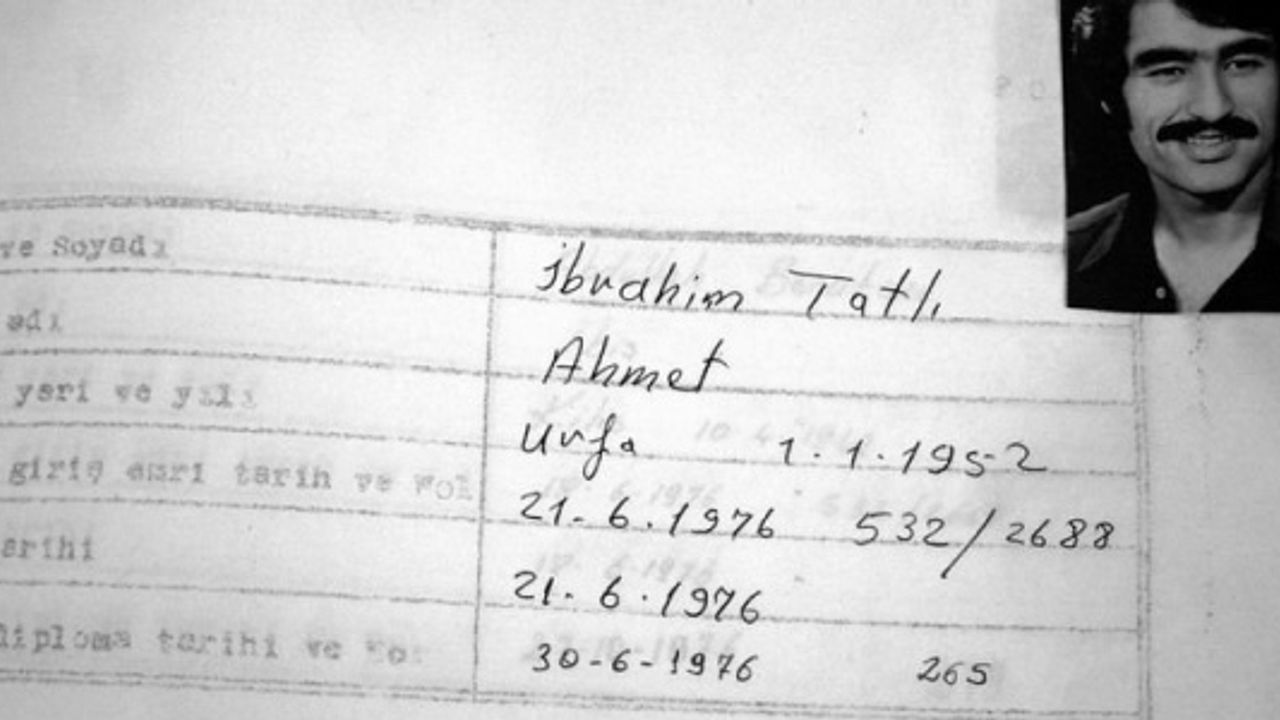 ve Soyadı İbrahim Tatlı
adı Ahmet
yeri ve yılı Urfa 1.1.1952
giriş emri tarih ve No: 21.6.1976 532/2688
arihi 21.6.1976
diploma tarihi ve No: 30-6-1976 265